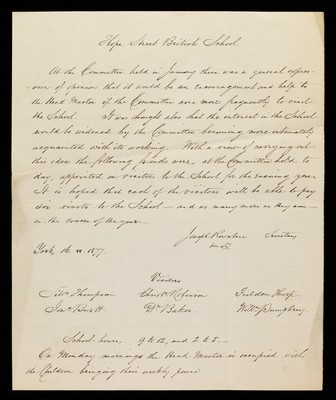 Hope Street British School.
At the Committee held in January there was a general expres-
sion of opinion that it would be an encouragement and help to
the Head Master if the Committee were more frequently to visit
the School. It was thought also that the interest in the School
would be widened by the Committee becoming more intimately
acquainted with its working. With a view of carrying out
this idea the following friends were, at the Committee held to
day, appointed as visitors to the School for the ensuing year.
It is hoped that each of the visitors will be able to pay
six visits to the School — and as many more as they can —
in the course of the year.
Joseph Rowntree Secretary
York, 16. 1877.
Visitors
Thompson Robinson Fielden Thorp
Jos. Dr. Baker Wm. Pumphrey
School hours, 9 to 12, and 2 to 5. —
On Monday mornings the Head Master is occupied with
the Children bringing their weekly pence